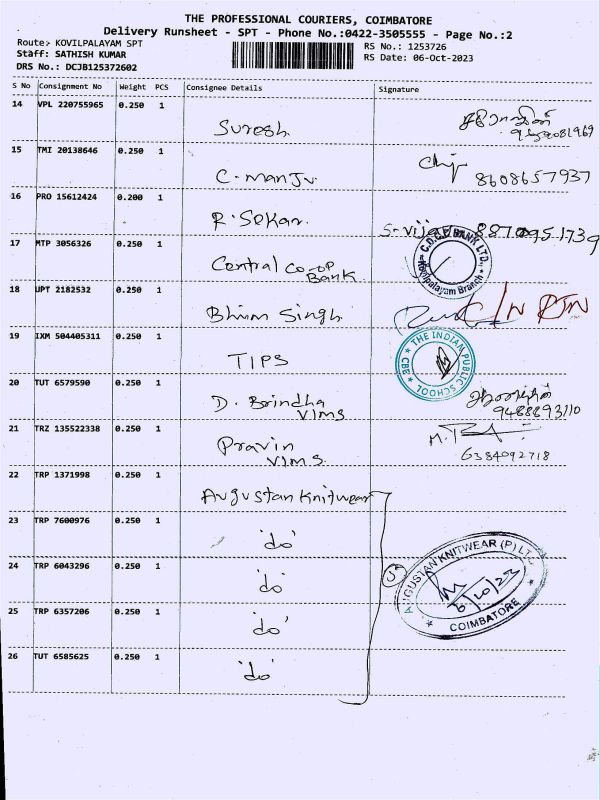 THE PROFESSIONAL COURIERS, COIMBATORE
Delivery Runsheet - SPT - Phone No.:0422-3505555 - Page No.:2
Route:- KOVILPALAYAM SPT
RS No.: 1253726
Staff: SATHISH KUMAR
RS Date: 06-Oct-2023
DRS No.: DCJB125372602
S No Consignment No Weight PCS Consignee Details Signature
14 VPL 220755965 0.250 1
Suresh
15 TMI 20138646 0.250 1
C. Manju
8608657937
16 PRO 15612424 0.200 1
R. Sekar
S. vijaya 8870951739
17 MTP 3056326 0.250 1
Central Co-op
Bank
C.D.C.C. BANK LTD.,
Kovilpalayam Branch
18 UPT 2182532 0.250 1
Bhim Singh
C/N RTN
19 IXM 504405311 0.250 1
TIPS
THE INDIAN PUBLIC SCHOOL
CBE
20 TUT 6579590 0.250 1
D. Brindha
VIMS
9488893110
21 TRZ 135522338 0.250 1
Pravin
VIMS
6384092718
22 TRP 1371998 0.250 1
Augustan Knitwear
23 TRP 7600976 0.250 1
'do'
24 TRP 6043296 0.250 1
'do'
5
AUGUSTAN KNITWEAR (P) LTD
6/10/23
COIMBATORE
25 TRP 6357206 0.250 1
'do'
26 TUT 6585625 0.250 1
'do'